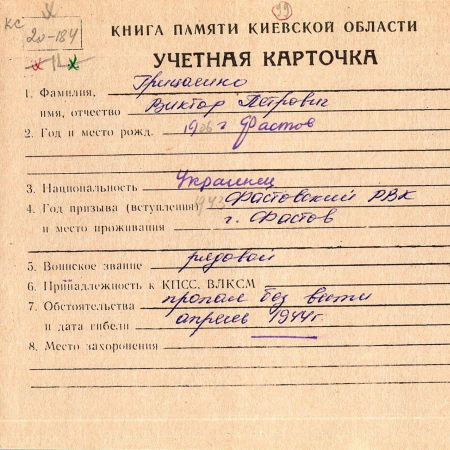 КС
20-184
99
КНИГА ПАМЯТИ КИЕВСКОЙ ОБЛАСТИ
УЧЕТНАЯ КАРТОЧКА
1. Фамилия, Грицаенко
имя, отчество Виктор Петрович
2. Год и место рожд. 1906 г Фастов
3. Национальность Украинец
4. Год призыва (вступления) 1943 Фастовский РВК
и место проживания г. Фастов
5. Воинское звание рядовой
6. Принадлежность к КПСС. ВЛКСМ
7. Обстоятельства пропал без вести
и дата гибели апрель 1944 г
8. Место захоронения